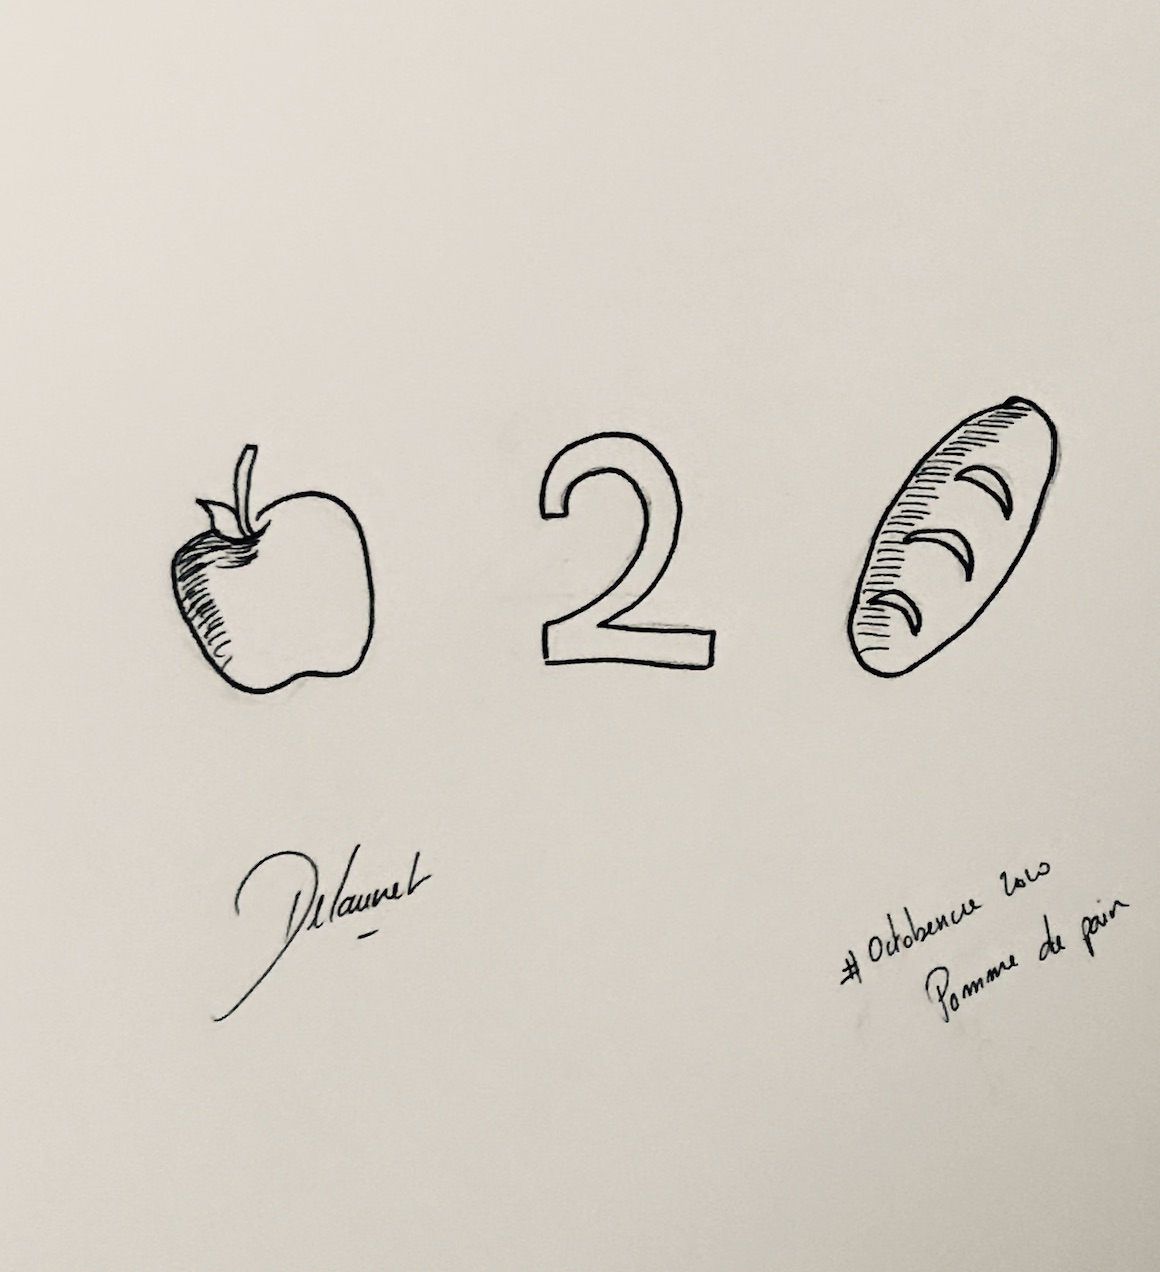 2
Delaunet
#Octobencre 2020
Pomme de pain